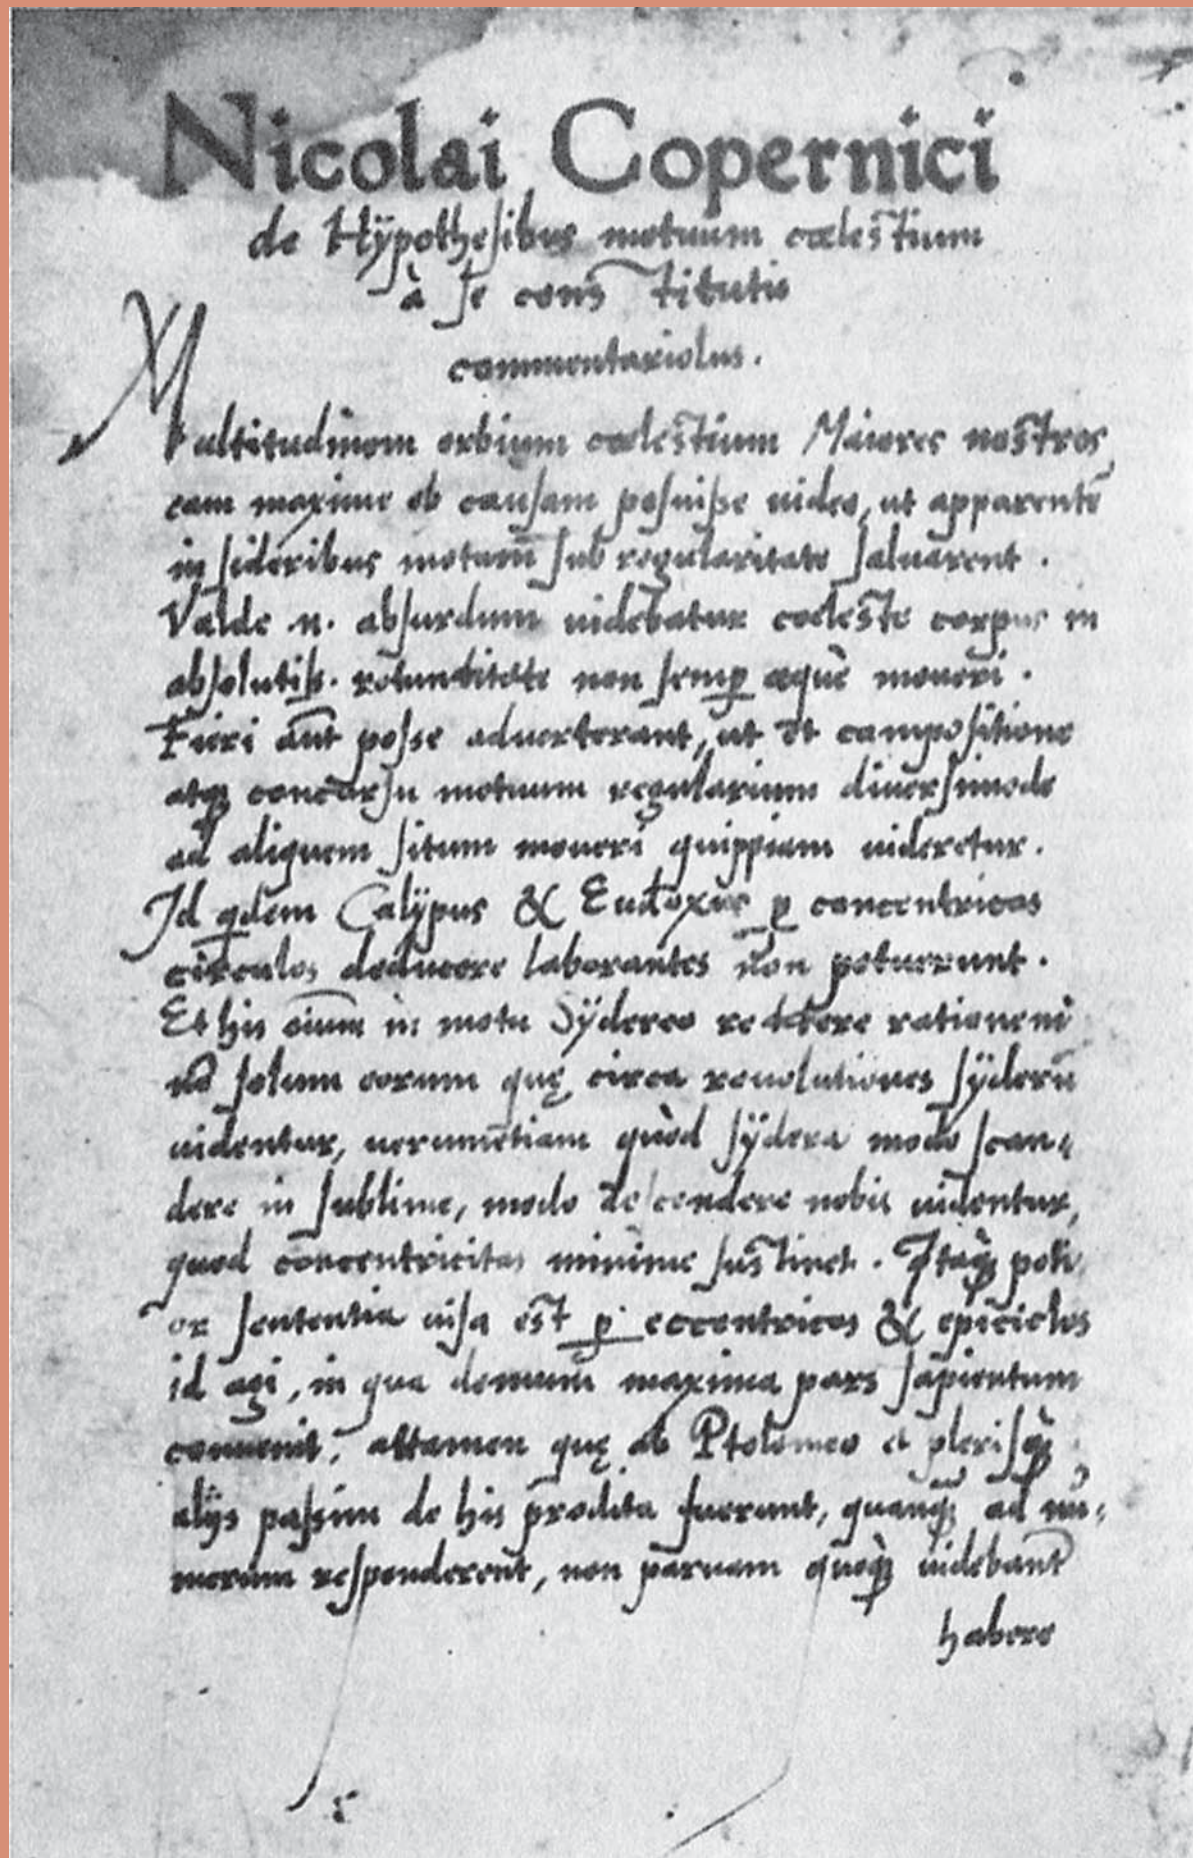 Nicolai Copernici
de Hÿpothesibus motuum cœlestium
à se constitutis
commentariolus.
Multitudinem orbium cœlestium Maiores nostros
eam maxime ob causam posuisse uideo, ut apparentē
in sideribus motum sub regularitate saluarent.
Valde .n. absurdum uidebatur cœleste corpus in
absolutiss. rotunditate non semꝑ æquè moueri.
Fieri aūt posse aduerterant, ut et compositione
atqꝫ concursu motuum regularium diuersimode
ad aliquem situm moueri quippiam uideretur.
Id qdem Calÿpus & Eudoxus ꝑ concentricos
circulos deducere laborantes non potuerunt.
Et his oium in motu Sÿdereo reddere rationem
nō solum eorum quę circa reuolutiones sÿderū
uidentur, uerumetiam quòd sÿdera modo scan-
dere in sublime, modo descendere nobis uidentur,
quod concentricitas minime sustinet. Itaqꝫ poti
or sententia uisa est ꝑ eccentricos & epiciclos
id agi, in qua demum maxima pars sapientum
conuenit, attamen quę ab Ptolomeo et plerisqꝫ
alÿs passim de his prodita fuerunt, quanqꝫ ad nu-
merum responderent, non paruam quoqꝫ uidebant
habere